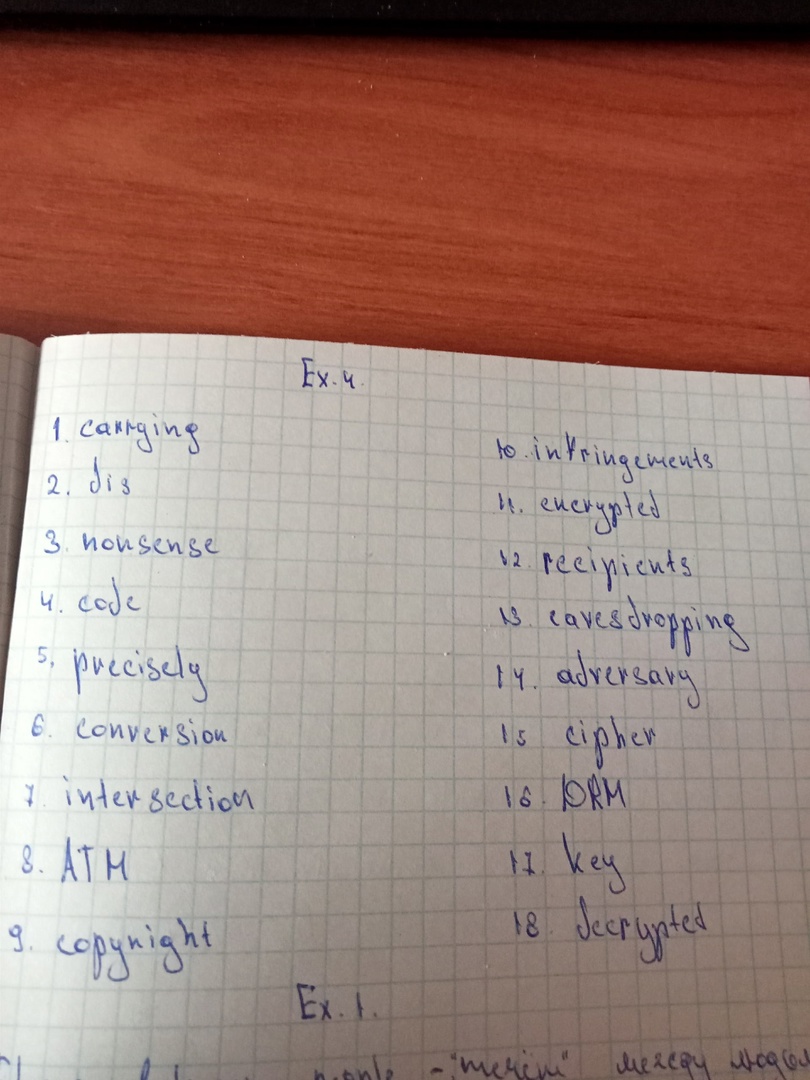 Ex. 4.
1. carrying
2. dis
3. nonsense
4. code
5. precisely
6. conversion
7. intersection
8. ATM
9. copyright
10. infringements
11. encrypted
12. recipients
13. eavesdropping
14. adversary
15 cipher
16. DRM
17. key
18. decrypted
Ex. 1.
people - "течёт" между людьм